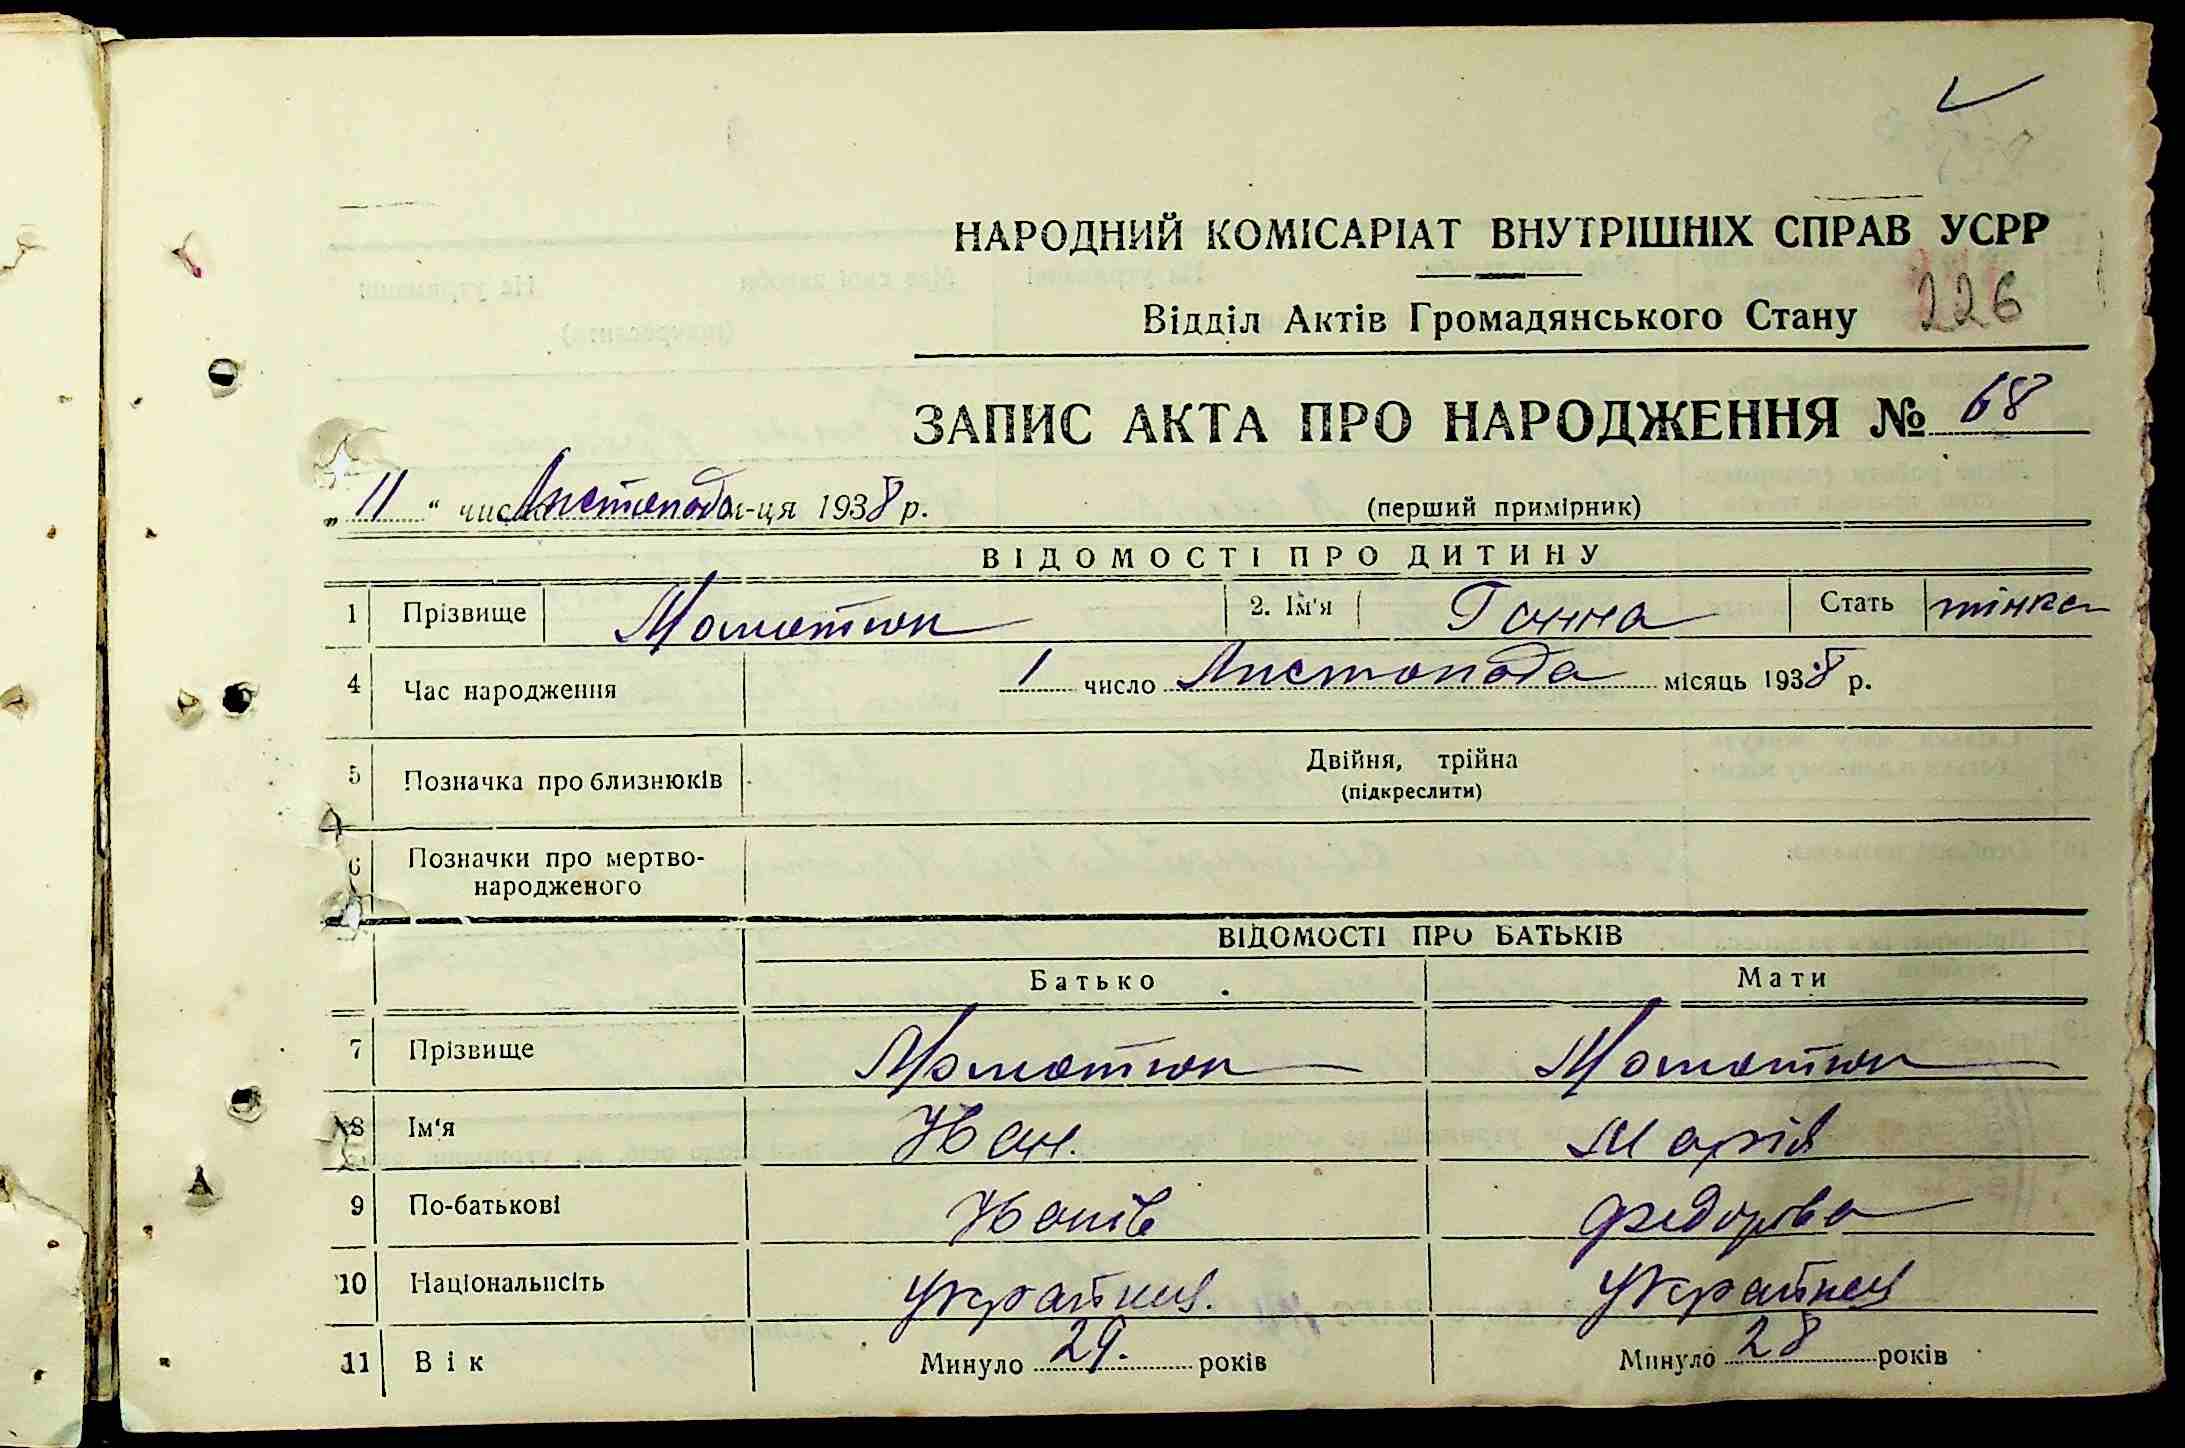 НАРОДНИЙ КОМІСАРІАТ ВНУТРІШНІХ СПРАВ УСРР
Відділ Актів Громадянського Стану 226
ЗАПИС АКТА ПРО НАРОДЖЕННЯ № 68
„ 11 “ числа Листопада м-ця 1938 р. (перший примірник)
ВІДОМОСТІ ПРО ДИТИНУ
1 Прізвище Маматюк 2. Ім'я Ганна Стать жінка
4 Час народження 1 число Листопада місяць 1938 р.
5 Позначка про близнюків Двійня, трійна
(підкреслити)
6 Позначки про мертво-
народженого
ВІДОМОСТІ ПРО БАТЬКІВ
Батько Мати
7 Прізвище Маматюк Маматюк
8 Ім‘я Іван. Марія
9 По-батькові Іванів Федорова
10 Національність Українц. Українц
11 Вік Минуло 29. років Минуло 28 років